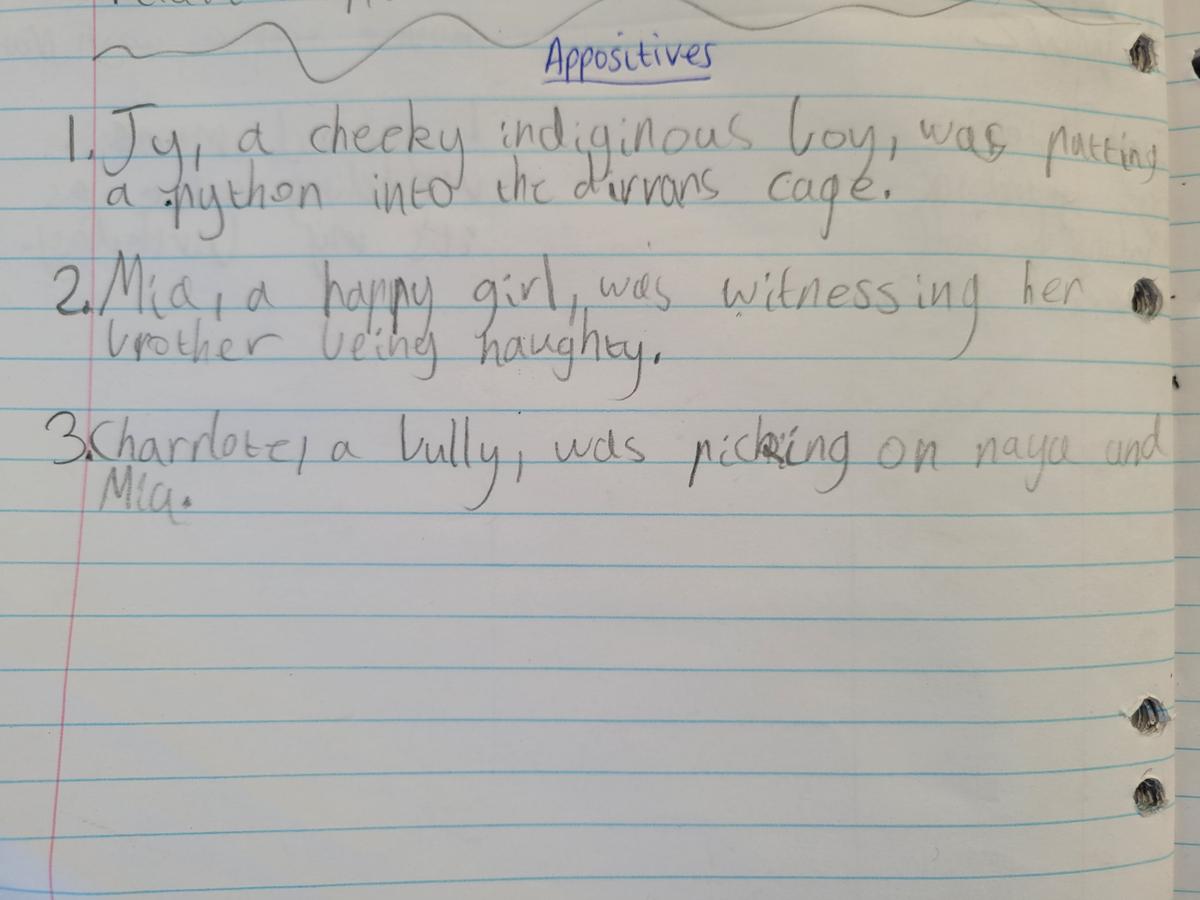 Appositives
1. Jy, a cheeky indiginous boy, was putting
a python into the dirrans cage.
2. Mia, a happy girl, was witnessing her
brother being naughty.
3. Charrlote, a bully, was picking on naya and
Mia.